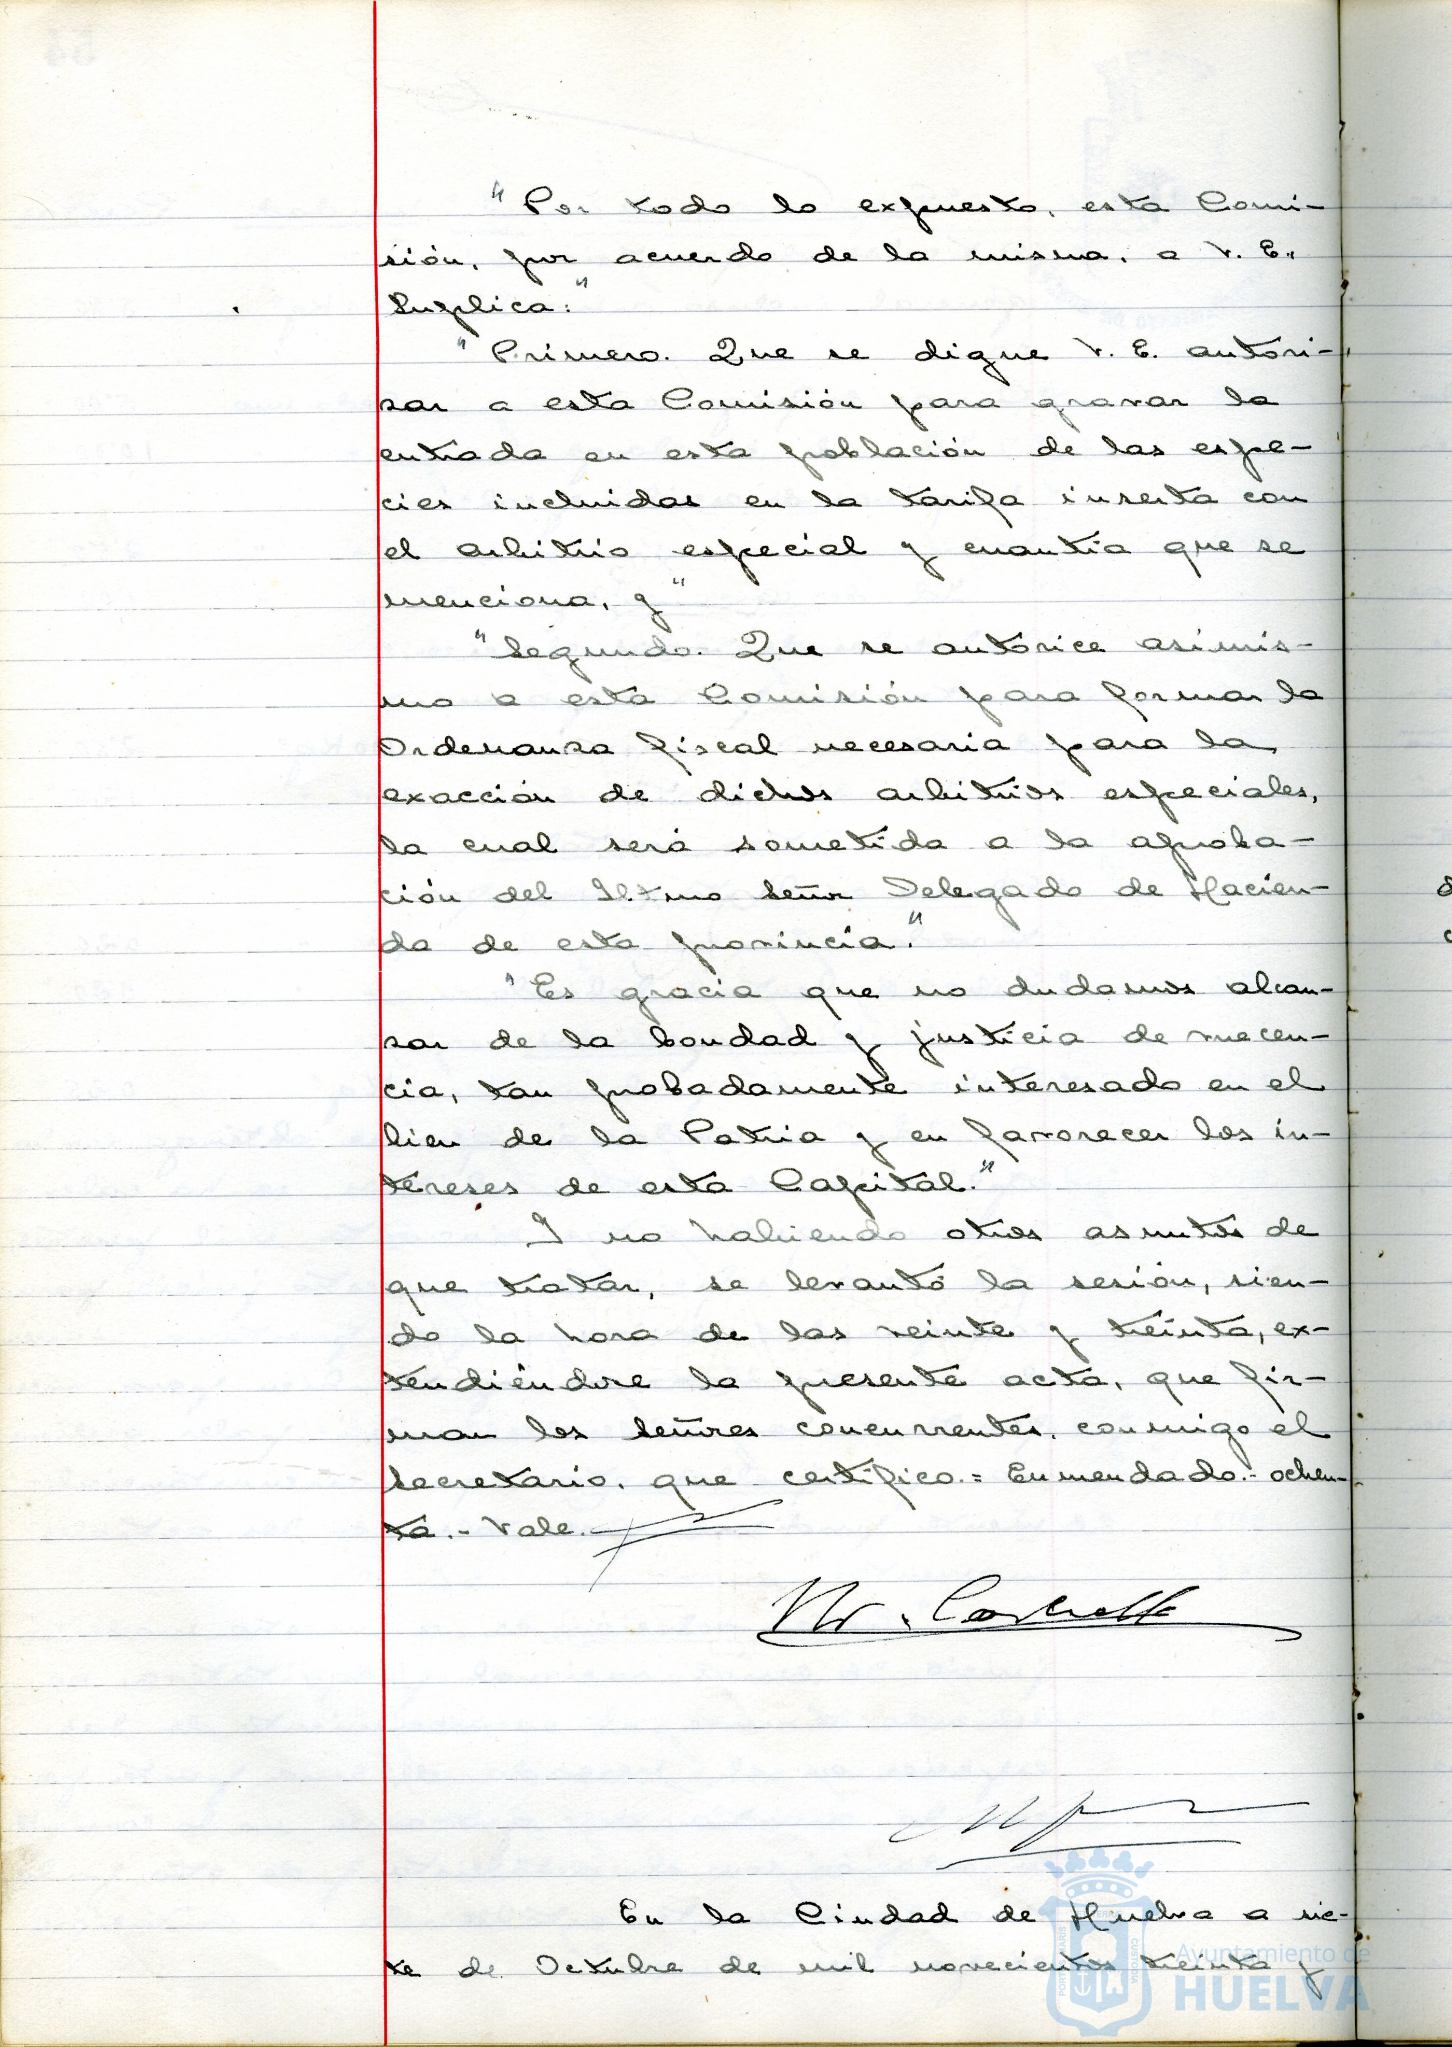 "Por todo lo expuesto, esta Comi-
sión, por acuerdo de la misma, a V. E.
Suplica:"
"Primero. Que se digne V. E. autori-
zar a esta Comisión para gravar la
entrada en esta población de las espe-
cies incluidas en la tarifa inserta con
el arbitrio especial y cuantía que se
menciona, y"
"Segundo. Que se autorice asimis-
mo a esta Comisión para formar la
Ordenanza fiscal necesaria para la
exacción de dichos arbitrios especiales,
la cual será sometida a la aproba-
ción del Iltmo Señor Delegado de Hacien-
da de esta provincia."
"Es gracia que no dudamos alcan-
zar de la bondad y justicia de vuecen-
cia, tan probadamente interesado en el
bien de la Patria y en favorecer los in-
tereses de esta Capital."
Y no habiendo otros asuntos de
que tratar, se levantó la sesión, sien-
do la hora de las veinte y treinta, ex-
tendiéndose la presente acta, que fir-
man los señores concurrentes, conmigo el
Secretario, que certifico.= Enmendado.- ochen-
ta.- Vale.
En la Ciudad de Huelva a sie-
te de Octubre de mil novecientos treinta y
Ayuntamiento de
HUELVA